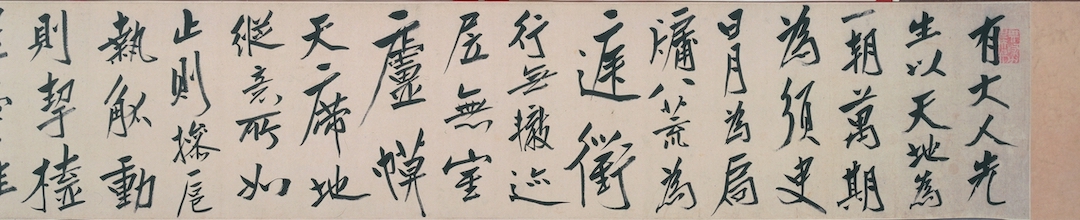 有大人先
生以天地為
一朝萬期
為須臾
日月為扃
牖八荒為
庭衢
行無轍迹
居無室
廬幙
天席地
縱意所如
止則操卮
執觚動
則挈榼